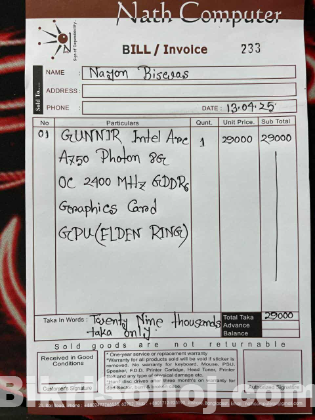 Nath Computer
BILL / Invoice 233
NAME : Nayon Biswas
ADDRESS:
PHONE : DATE : 13.04.25
Sold To...
No Particulars Qunt. Unit Price. Sub Total
01 GUNNIR Intel Arc 1 29000 29000
A750 Photon 8G
OC 2400 MHz GDDR6
Graphics Card
GPU (ELDEN RING)
Taka In Words: Twenty Nine thousands Total Taka 29000
taka only Advance
Balance
Sold goods are not returnable
Received in Good
Conditions
* One-year service or replacement warranty
*Warranty for all products sold will be void if sticker is
removed. No warranty for keyboard, Mouse, PSU,
Speaker, F.D.D, Printer Catridge, Head Toner, Printer
Customer's Signature